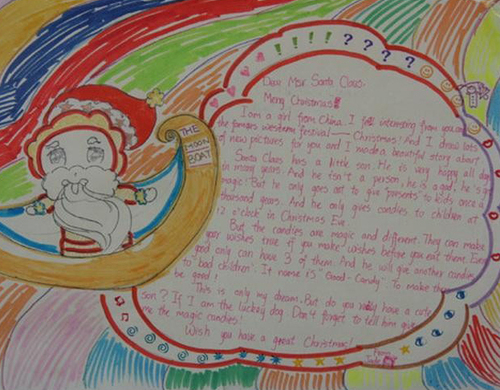 !!!! ????
Dear Mr Santa Claus:
Merry Christmas!
I am a girl from China. I felt interesting from you and
the famous western festival—Christmas! And I draw lots
of new pictures for you and I made a beautiful story about
Santa Claus has a little son. He is very happy all day
in many years. And he isn't a person, he is a god, he's of
magic! But he only goes out to give "presents" to kids once a
thousand years. And he only gives candies to children at
12 o'clock in Christmas Eve.
But the candies are magic and different. They can make
your wishes true if you make wishes before you eat them. Every
god only can have 3 of them. And he will give another candies
to "bad children". It name is "Good-Candy" To make them
be good!
This is only my dream. But do you really have a cute
son? If I am the luckey dog. Don't forget to tell him give
me the magic candies!
Wish you have a great Christmas!
THE
MOON
BOAT